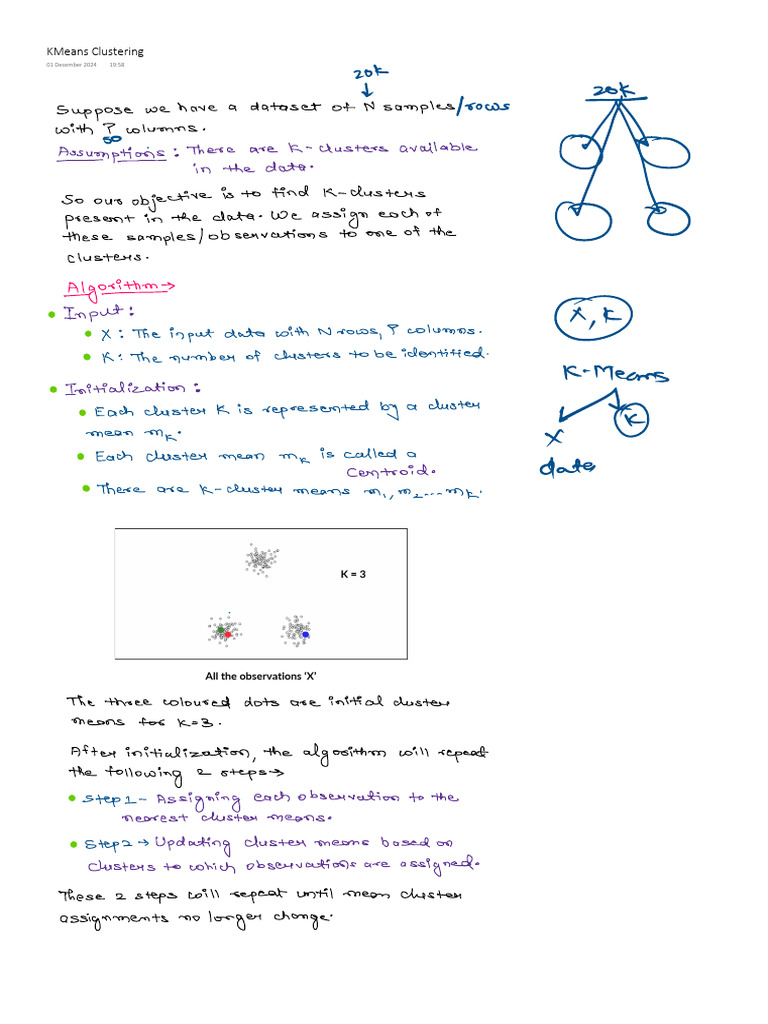 KMeans Clustering
01 December 2024 19:58
20k
Suppose we have a dataset of N samples/rows
with P columns.
50
Assumptions : There are K-clusters available
in the data.
So our objective is to find K-clusters
present in the data. We assign each of
these samples/observations to one of the
clusters.
Algorithm→
Input:
X : The input data with N rows, P columns.
K: The number of clusters to be identified.
Initialization:
Each cluster K is represented by a cluster
mean mK.
Each cluster mean mK is called a
Centroid.
There are K-cluster means m1, m2...mK.
20k
X, K
K-Means
X
K
data
K = 3
All the observations 'X'
The three coloured dots are initial cluster
means for K=3.
After initialization, the algorithm will repeat
the following 2 steps→
Step1- Assigning each observation to the
nearest cluster means.
Step2→ Updating cluster means based on
clusters to which observations are assigned.
These 2 steps will repeat until mean cluster
assignments no longer change.